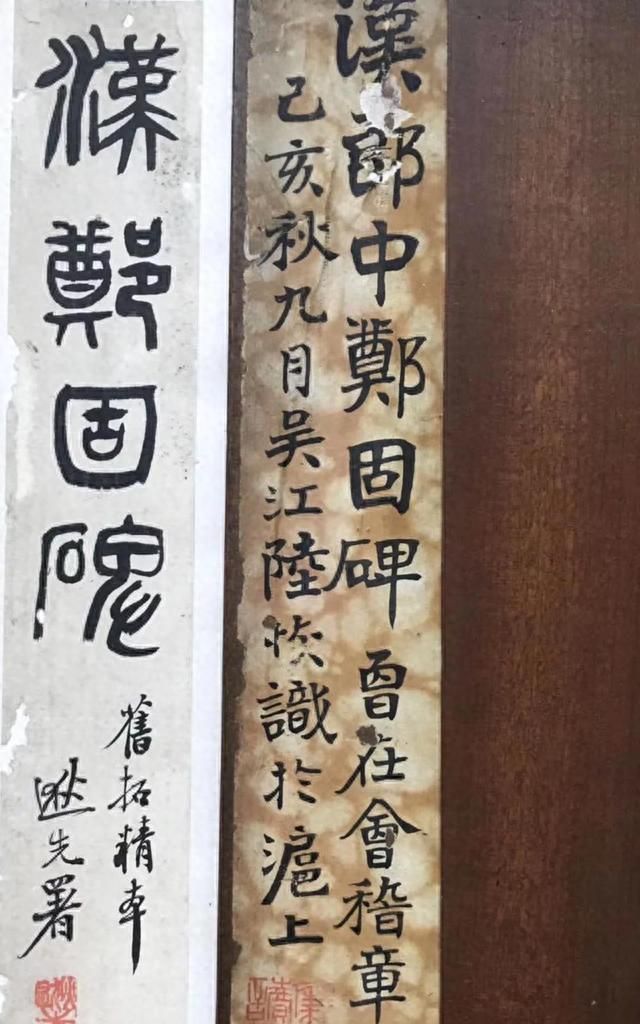 漢郎中鄭固碑 曾在會稽章
己亥秋九月吳江陸恢識於滬上
漢鄭固碑
舊拓精本
逖先署